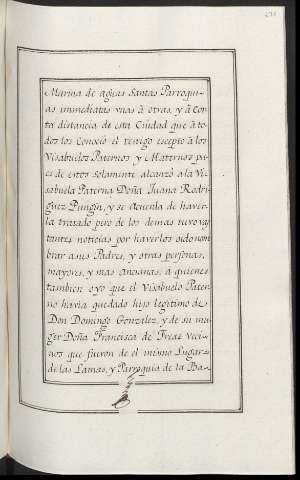 Marina de aguas Santas Parroqui-
as immediatas unas à otras, y à cor-
ta distancia de esta Ciudad que à to-
dos los Conocio el testigo excepto à los
Visabuelos Paternos y Maternos pu-
es de estos solamente alcanzò a la Vi-
sabuela Paterna Doña Juana Rodri-
guez Pungin, y se acuerda de haver-
la tratado pero de los demas tuvo vas-
tantes noticias por haverlos oido nom-
brar a sus Padres, y otras personas,
mayores, y mas ancianas, à quienes
tambien oyo que el Visabuelo Pater-
no havia quedado hijo legitimo de
Don Domingo Gonzalez, y de su mu-
ger Doña Francisca de Freas veci-
nos que fueron de el mismo Lugar
de las Lamas, y Parroquia de la Ba-